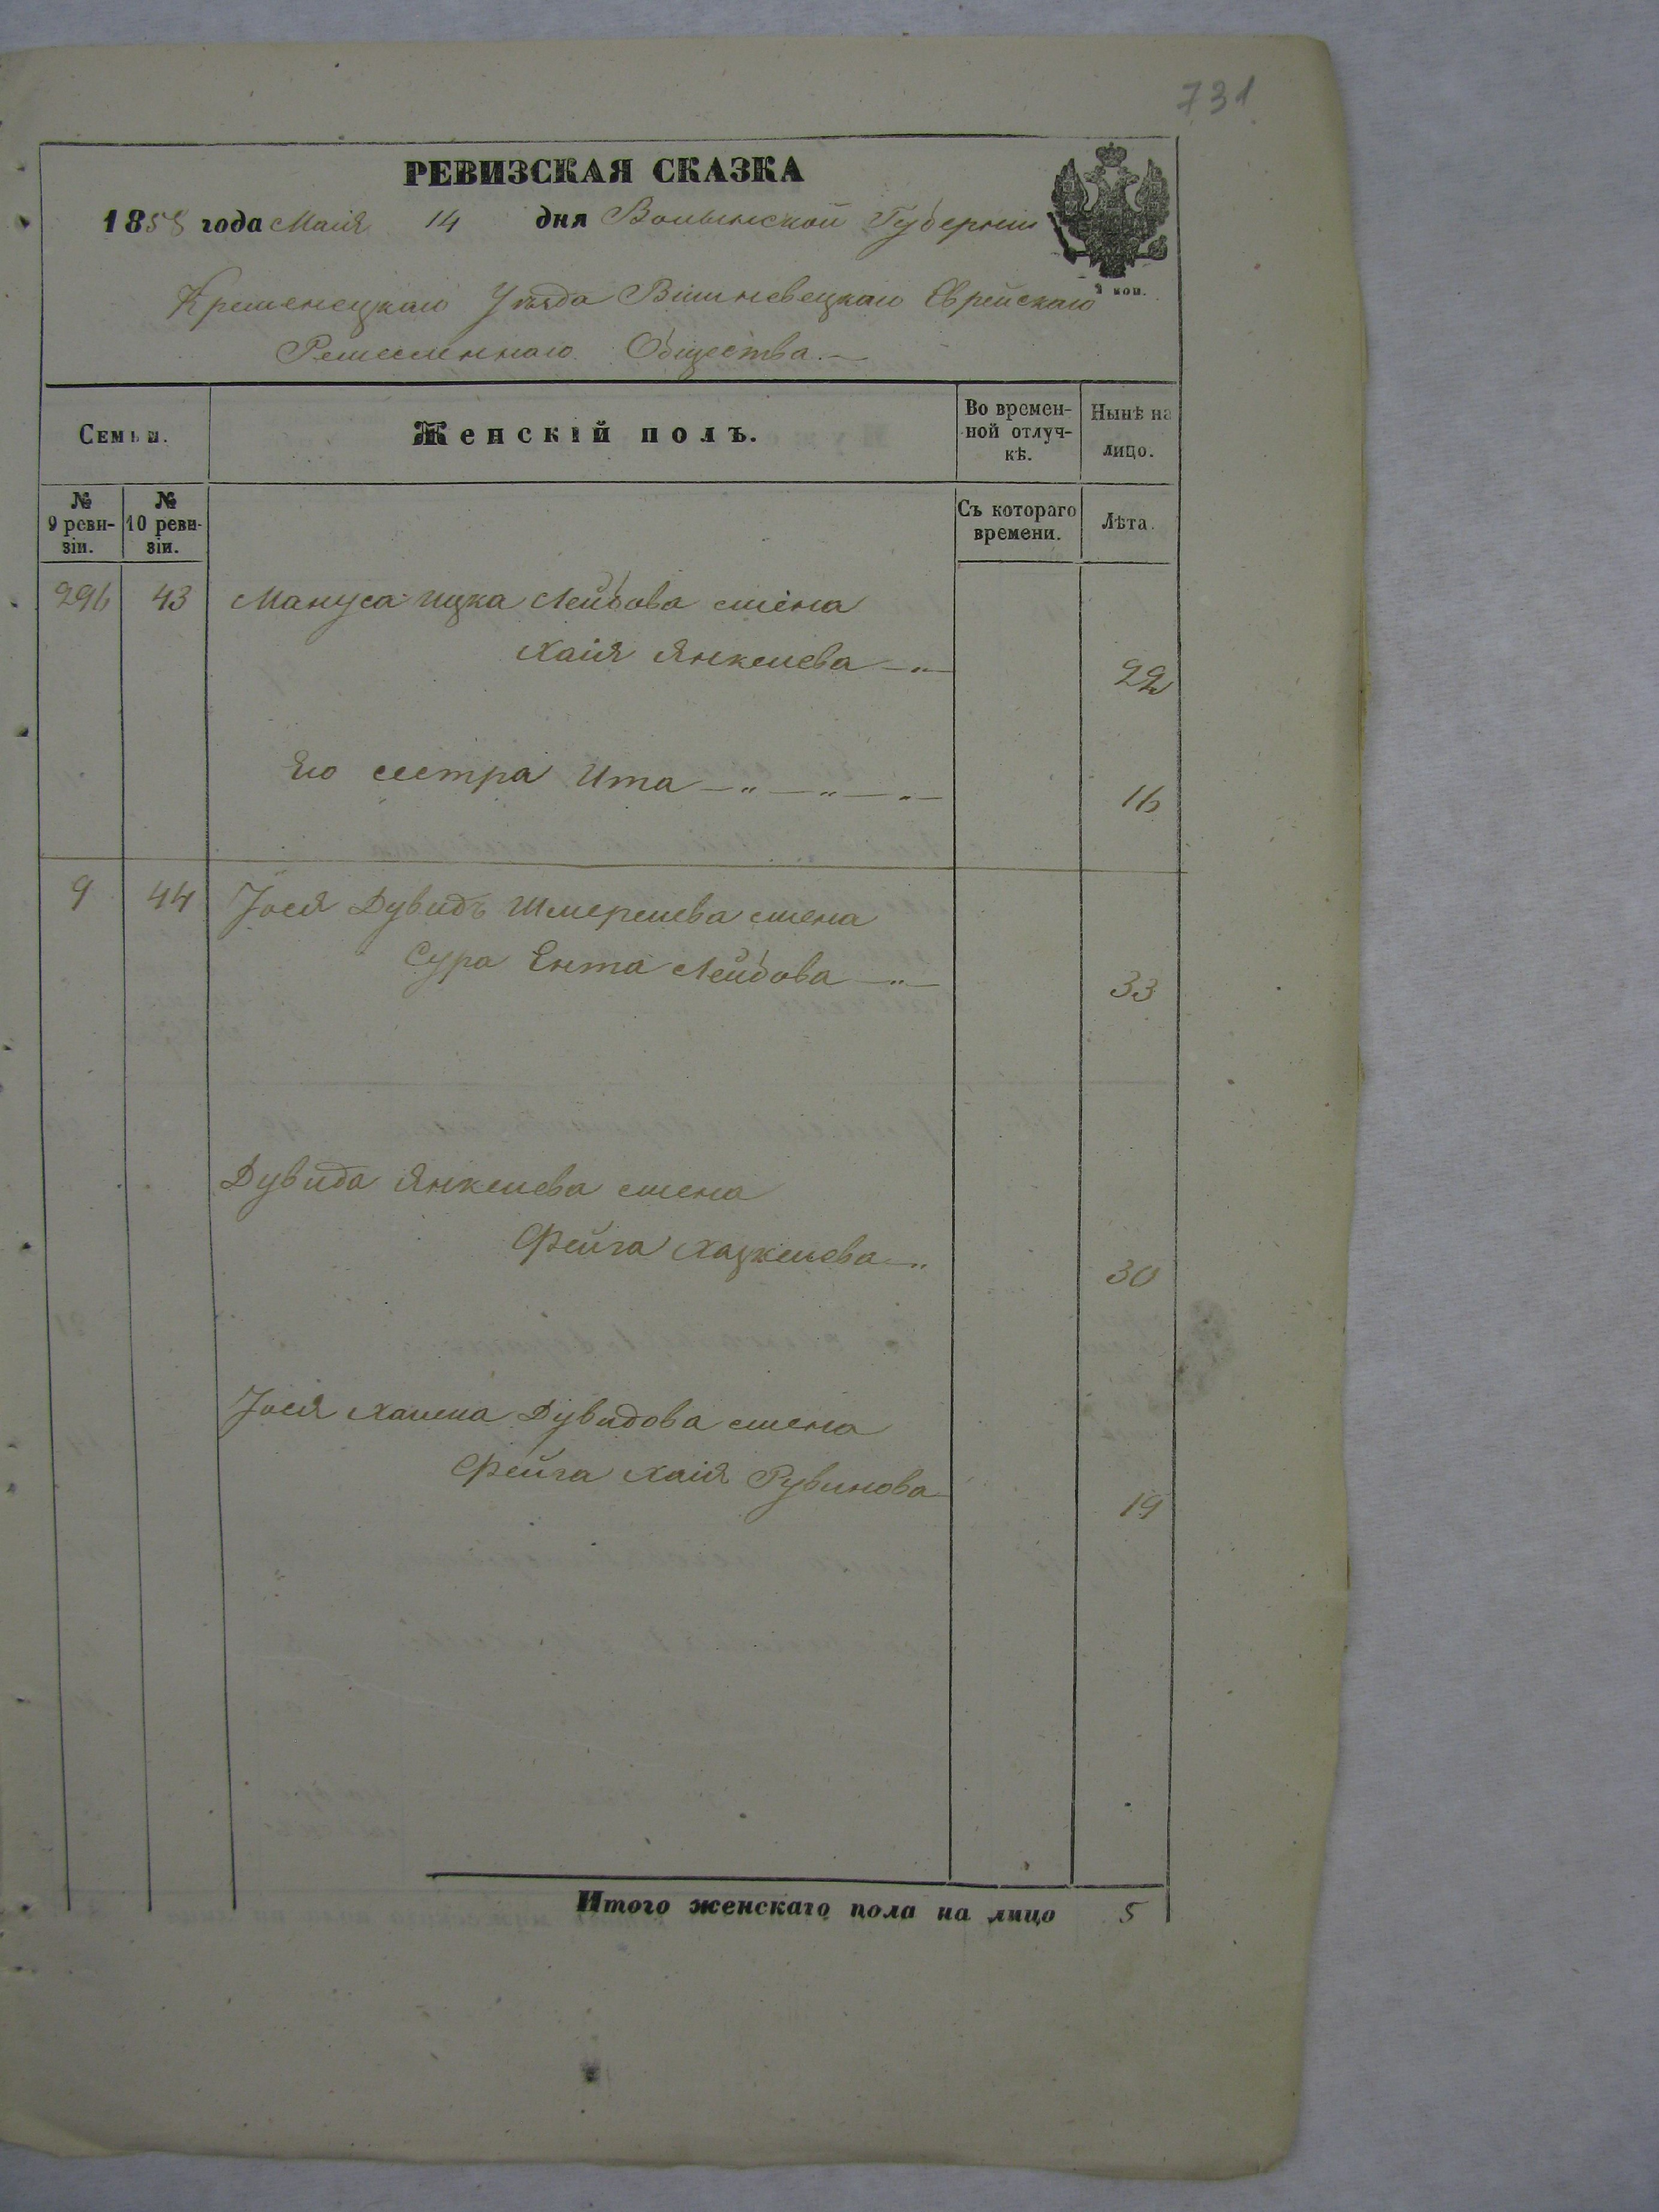 731
РЕВИЗСКАЯ СКАЗКА
1858 года Маія 14 дня Волынской Губерніи
2 коп.
Кременецкаго Уѣзда Вишневецкаго Еврейскаго
Ремесленнаго Общества.—
Семьи. Женскій полъ. Во времен- Нынѣ на
ной отлуч- лицо.
кѣ.
№ 9 реви- зіи. № 10 реви- зіи. Съ котораго времени. Лѣта.
296 43 Мануса Ицка Лейбова жена
Хаія Янкелева —„— 22
Его сестра Ита —„—„—„— 16
9 44 Іося Дувидъ Шмерелева жена
Сура Ента Лейбова —„— 33
Дувида Янкелева жена
Фейга Хацкелева —„ 30
Іося Хаима Дувидова жена
Фейга Хаія Рувинова 19
Итого женскаго пола на лицо 5